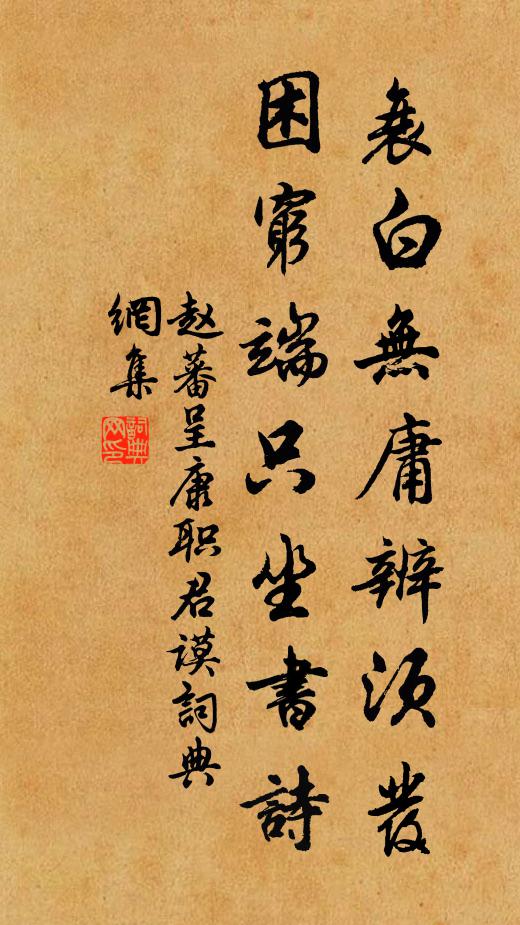 衰白無庸辨須發
困窮端只坐書詩
赵蕃呈康职君谟詞典
網集
詞典
网印